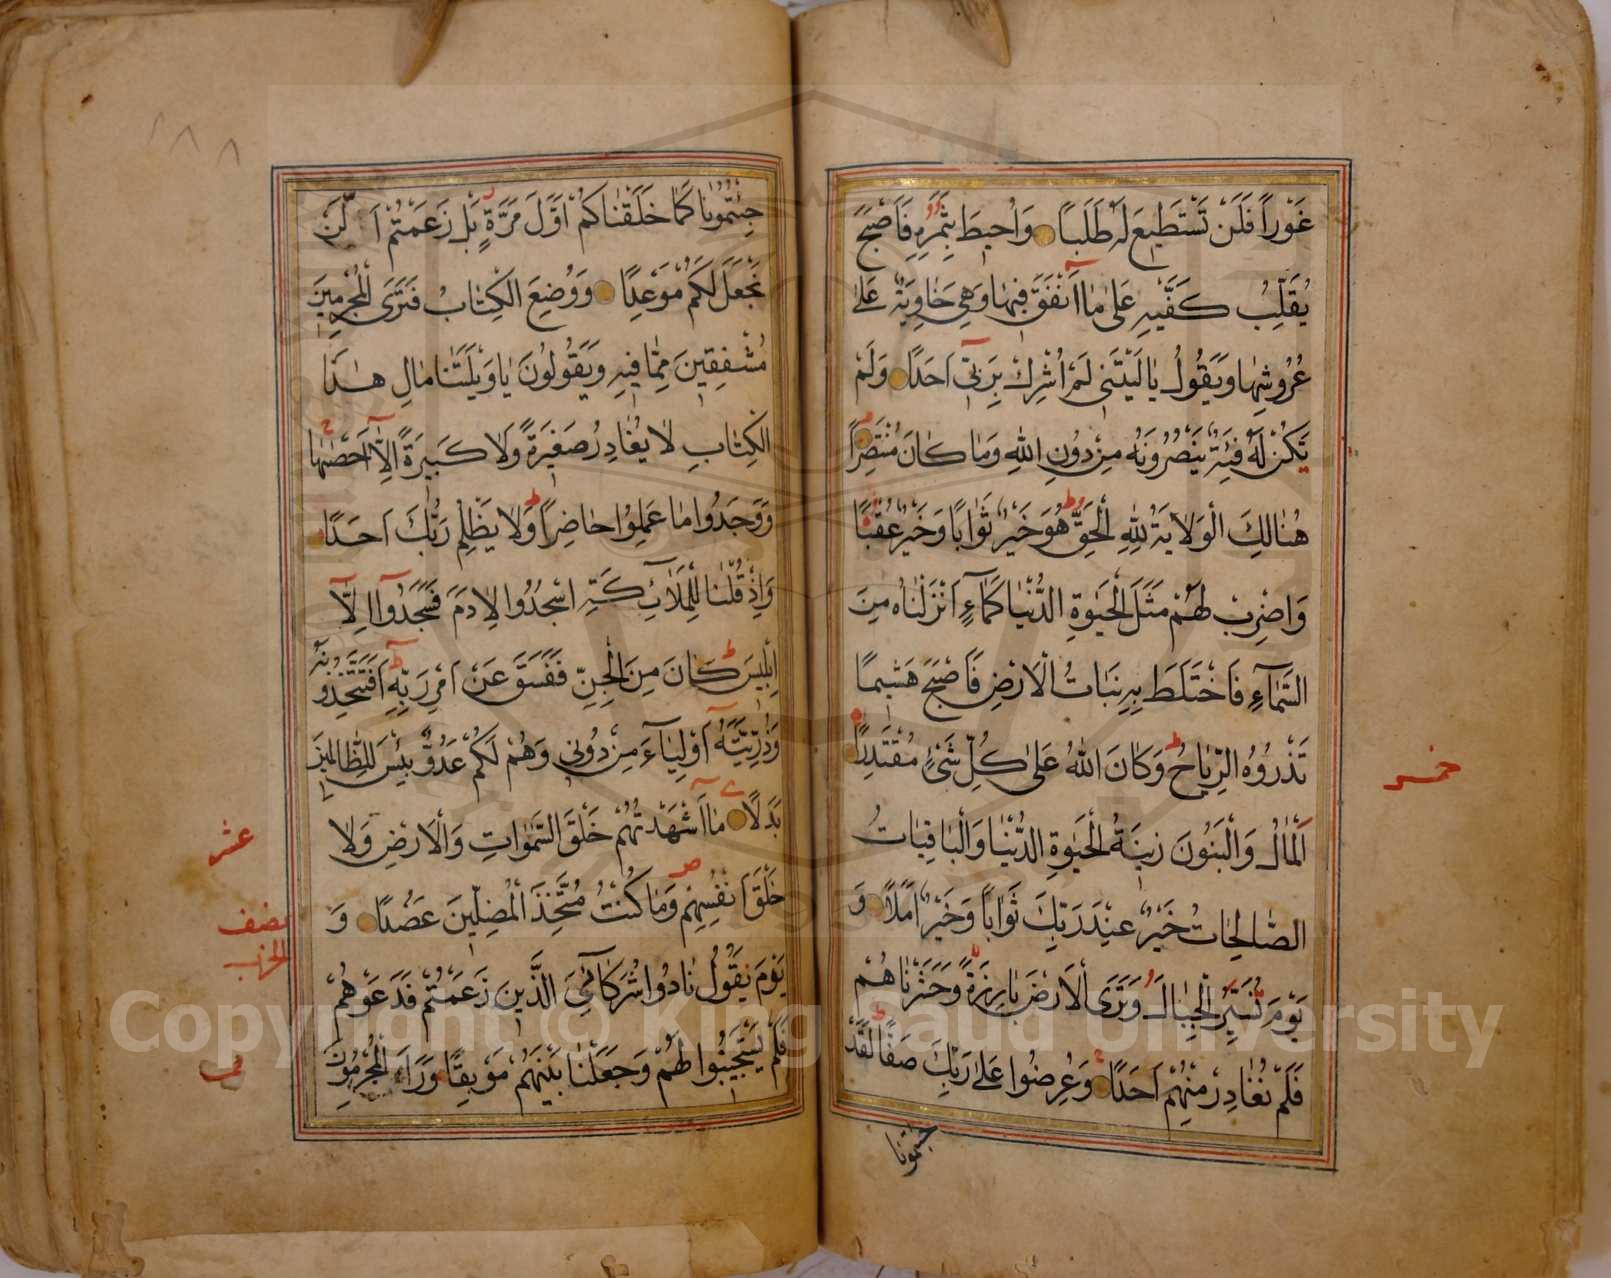 غَوْراً فَلَنْ تَسْتَطيعَ لَهُ طَلَباً وَاُحيطَ بِثَمَرِهِ فَاَصْبَحَ
يُقَلِّبُ كَفَّيْهِ عَلى مٰا اَنْفَقَ فيهٰا وَهِيَ خٰاوِيَةٌ عَلىٰ
عُرُوشِهٰا وَيَقُولُ يٰا لَيْتَني لَمْ اُشْرِكْ بِرَبّي اَحَدًا وَلَمْ
تَكُنْ لَهُ فِئَةٌ يَنْصُرُونَهُ مِنْ دُونِ اللّٰهِ وَمٰا كٰانَ مُنْتَصِراً
هُنٰالِكَ الْوَلايَةُ لِلّٰهِ الْحَقِّ هُوَ خَيْرٌ ثَوٰابًا وَخَيْرٌ عُقْبًا
وَاضْرِبْ لَهُمْ مَثَلَ الْحَيٰوةِ الدُّنْيٰا كَمٰآءٍ اَنْزَلْنٰاهُ مِنَ
السَّمٰآءِ فَاخْتَلَطَ بِهِ نَبٰاتُ الْاَرْضِ فَاَصْبَحَ هَشيمًا
تَذْرُوهُ الرِّيٰاحُ وَكٰانَ اللّٰهُ عَلىٰ كُلِّ شَيْءٍ مُقْتَدِرًا
اَلْمٰالُ وَالْبَنُونَ زينَةُ الْحَيٰوةِ الدُّنْيٰا وَالْبٰاقِيٰاتُ
الصّٰالِحٰاتُ خَيْرٌ عِنْدَ رَبِّكَ ثَوٰابًا وَخَيْرٌ اَمَلًا وَ
يَوْمَ نُسَيِّرُ الْجِبٰالَ وَتَرَى الْاَرْضَ بٰارِزَةً وَحَشَرْنٰاهُمْ
فَلَمْ نُغٰادِرْ مِنْهُمْ اَحَدًا وَعُرِضُوا عَلىٰ رَبِّكَ صَفًّا لَقَدْ
جئتمونا
خمس
جِئْتُمُونٰا كَمٰا خَلَقْنٰاكُمْ اَوَّلَ مَرَّةٍ بَلْ زَعَمْتُمْ اَلَّنْ
نَجْعَلَ لَكُمْ مَوْعِدًا وَوُضِعَ الْكِتٰابُ فَتَرَى الْمُجْرِمينَ
مُشْفِقينَ مِمّٰا فيهِ وَيَقُولُونَ يٰا وَيْلَتَنٰا مٰالِ هٰذَا
الْكِتٰابِ لٰا يُغٰادِرُ صَغيرَةً وَلٰا كَبيرَةً اِلّٰا اَحْصٰيهٰا
وَوَجَدُوا مٰا عَمِلُوا حٰاضِراً وَلٰا يَظْلِمُ رَبُّكَ اَحَدًا
وَاِذْ قُلْنٰا لِلْمَلٰٓائِكَةِ اسْجُدُوا لِاٰدَمَ فَسَجَدُوا اِلّٰا
اِبْليسَ كٰانَ مِنَ الْجِنِّ فَفَسَقَ عَنْ اَمْرِ رَبِّهِ اَفَتَتَّخِذُونَهُ
وَذُرِّيَّتَهُ اَوْلِيٰآءَ مِنْ دُوني وَهُمْ لَكُمْ عَدُوٌّ بِئْسَ لِلظّٰالِمينَ
بَدَلًا مٰا اَشْهَدْتُهُمْ خَلْقَ السَّمٰوٰاتِ وَالْاَرْضِ وَلٰا
خَلْقَ اَنْفُسِهِمْ وَمٰا كُنْتُ مُتَّخِذَ الْمُضِلّينَ عَضُدًا وَ
يَوْمَ يَقُولُ نٰادُوا شُرَكٰائِيَ الَّذينَ زَعَمْتُمْ فَدَعَوْهُمْ
فَلَمْ يَسْتَجيبُوا لَهُمْ وَجَعَلْنٰا بَيْنَهُمْ مَوْبِقًا وَرَاَ الْمُجْرِمُونَ
عشر
نصف
الحزب
Copyright © King Saud University